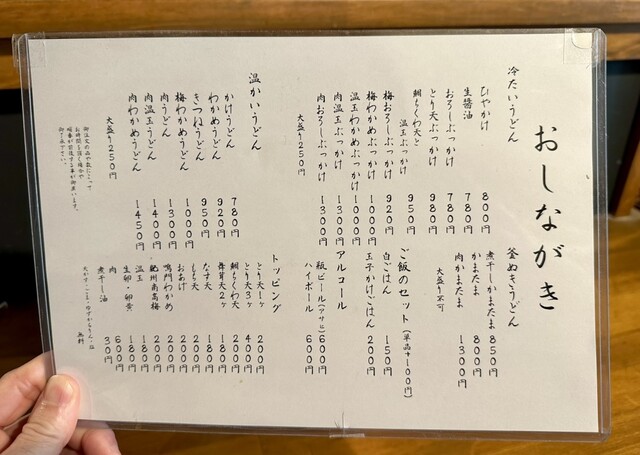 おしながき
冷たいうどん
ひやかけ 800円
生醤油 780円
おろしぶっかけ 780円
とり天ぶっかけ 980円
鯛ちくわ天と
温玉ぶっかけ 950円
梅おろしぶっかけ 920円
梅わかめぶっかけ 1000円
温玉わかめぶっかけ 1000円
肉温玉ぶっかけ 1300円
肉おろしぶっかけ 1300円
大盛り250円
温かいうどん
かけうどん 780円
わかめうどん 920円
きつねうどん 950円
梅わかめうどん 1000円
肉うどん 1300円
肉温玉うどん 1400円
肉わかめうどん 1450円
大盛り250円
御注文の品や数によって
お時間を頂く場合や
順番が前後する事が御座います。
御了承下さい。
釜ぬきうどん
煮干しかまたま 850円
かまたま 800円
肉かまたま 1300円
大盛り不可
ご飯のセット(単品+100円)
白ごはん 150円
玉子かけごはん 200円
アルコール
瓶ビール(アサヒ) 600円
ハイボール 600円
トッピング
とり天1ヶ 200円
とり天3ヶ 400円
鯛ちくわ天 200円
舞茸天2ヶ 180円
なす天 180円
もち天 200円
おあげ 200円
鳴門わかめ 200円
紀州南高梅 200円
温玉 180円
生卵・卵黄 180円
肉 600円
煮干し油 30円
無料